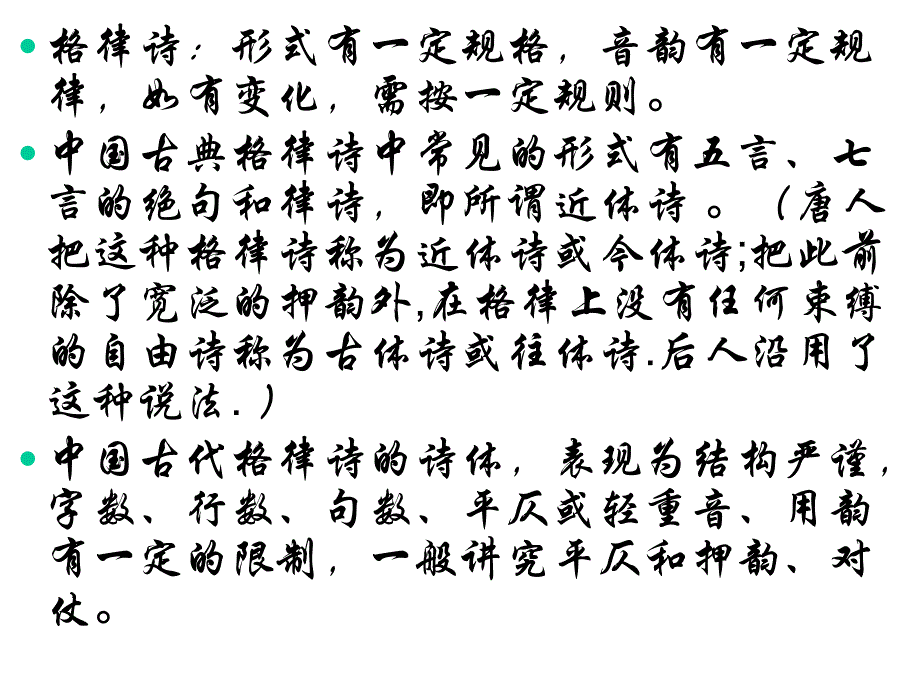 • 格律诗：形式有一定规格，音韵有一定规
律，如有变化，需按一定规则。
• 中国古典格律诗中常见的形式有五言、七
言的绝句和律诗，即所谓近体诗 。（唐人
把这种格律诗称为近体诗或今体诗;把此前
除了宽泛的押韵外,在格律上没有任何束缚
的自由诗称为古体诗或往体诗.后人沿用了
这种说法.）
• 中国古代格律诗的诗体，表现为结构严谨，
字数、行数、句数、平仄或轻重音、用韵
有一定的限制，一般讲究平仄和押韵、对
仗。